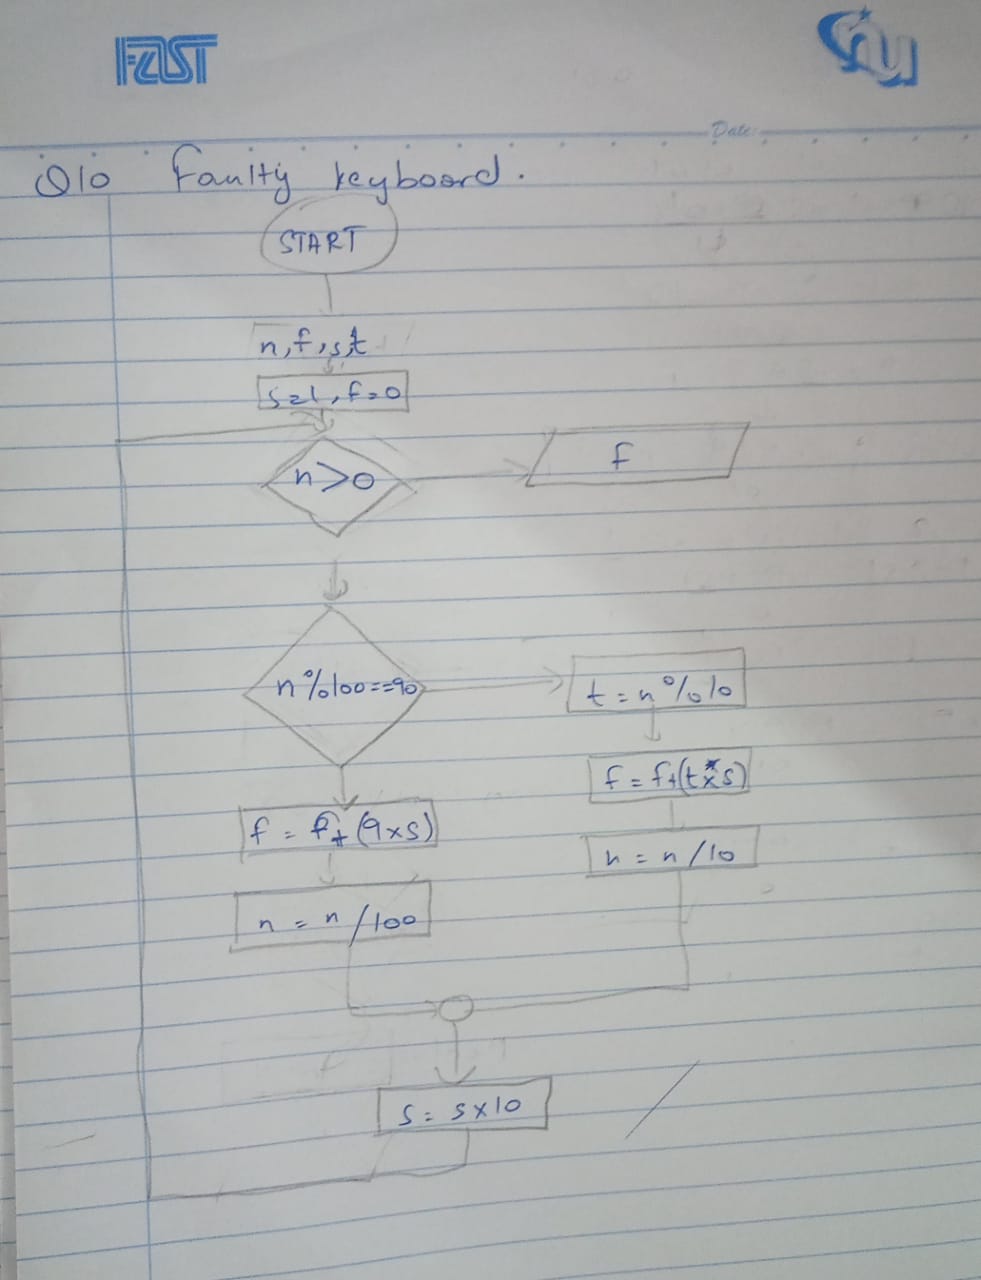 FAST
nu
Date:
Q10 Faulty keyboard.
START
n,f,s,t
s=1, f=0
n>0
f
n%100==90
t=n%10
f=f+(t*s)
f = f+(9xs)
n=n/10
n=n/100
s=sx10